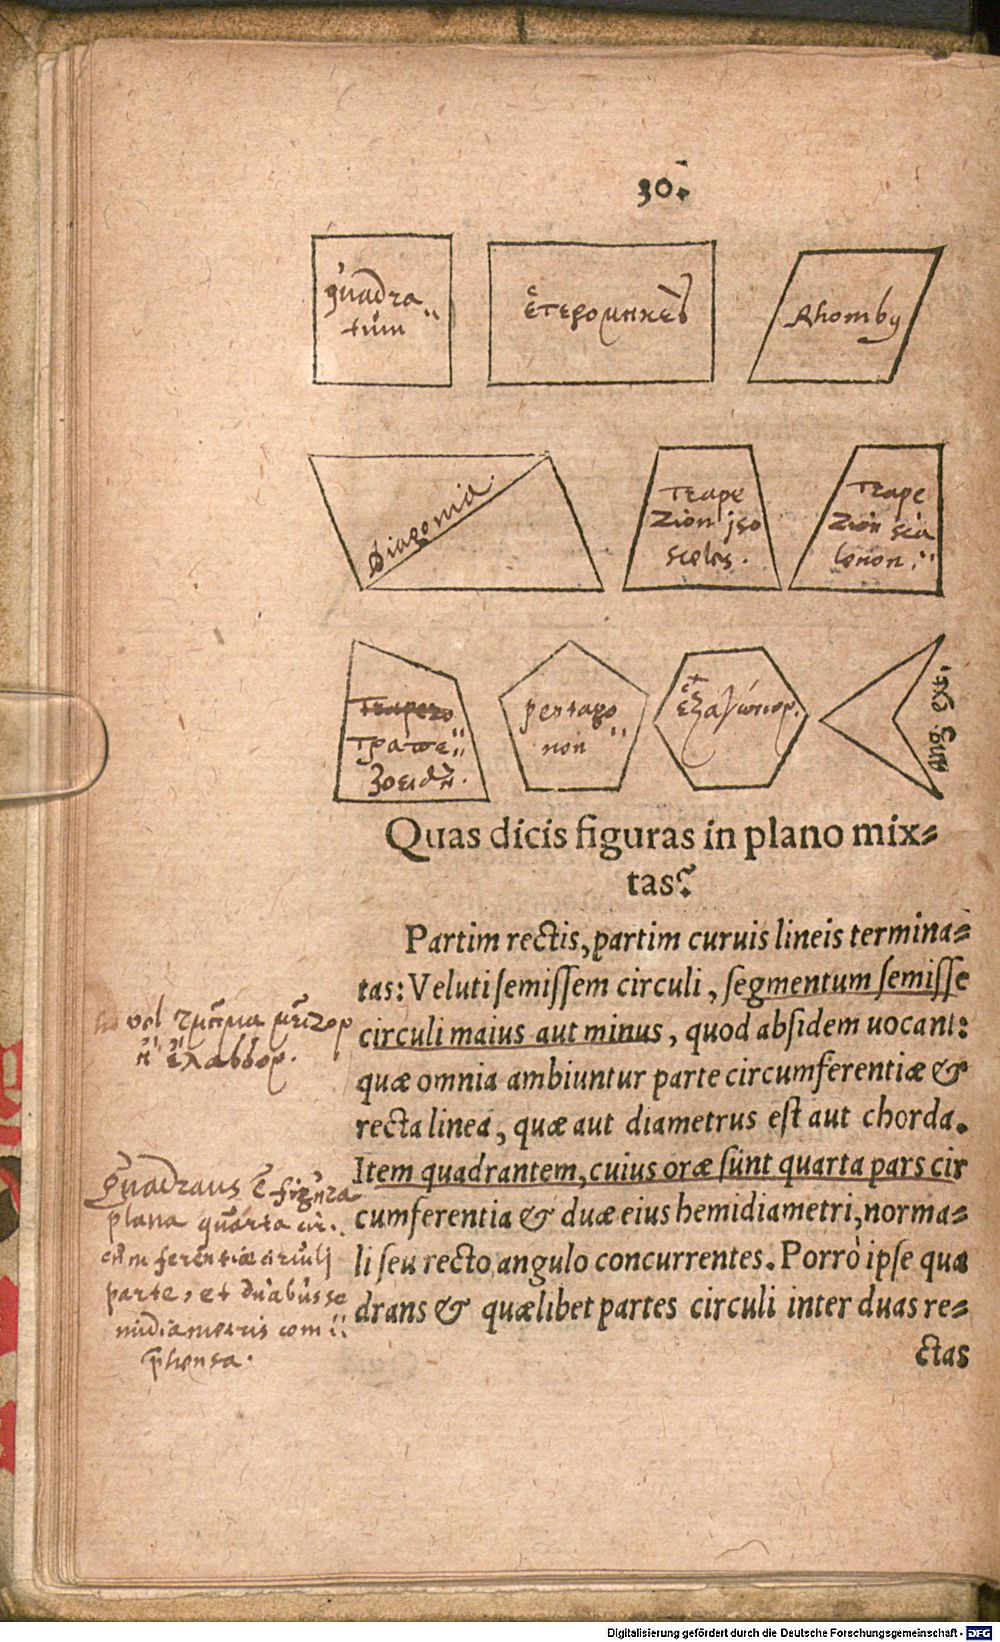 30.
quadra
tum
ἑτερομηκὲς
Rhombus
Diagonia
Trape
zion iso
sceles.
Trape
zion sca
lenon.
Trapezo
τραπε
ζοειδὴ.
pentago
non
ἑξαγώνιον.
Ang. ext.
Quas dicis figuras in plano mix⸗
tas?
Partim rectis, partim curuis lineis termina⸗
tas: Veluti semissem circuli, segmentum semisse
circuli maius aut minus, quod absidem uocant:
quæ omnia ambiuntur parte circumferentiæ &
recta linea, quæ aut diametrus est aut chorda.
Item quadrantem, cuius oræ sunt quarta pars cir
cumferentia & duæ eius hemidiametri, norma⸗
li seu recto angulo concurrentes. Porrò ipse qua
drans & quælibet partes circuli inter duas re⸗
ctas
vel τμῆμα μεῖζον
ἢ ἔλασσον.
Quadrans ē figura
plana quarta cir.
cum ferentiæ circuli
parte, et duabus se
midiametris com
p̄hensa.
Digitalisierung gefördert durch die Deutsche Forschungsgemeinschaft - DFG